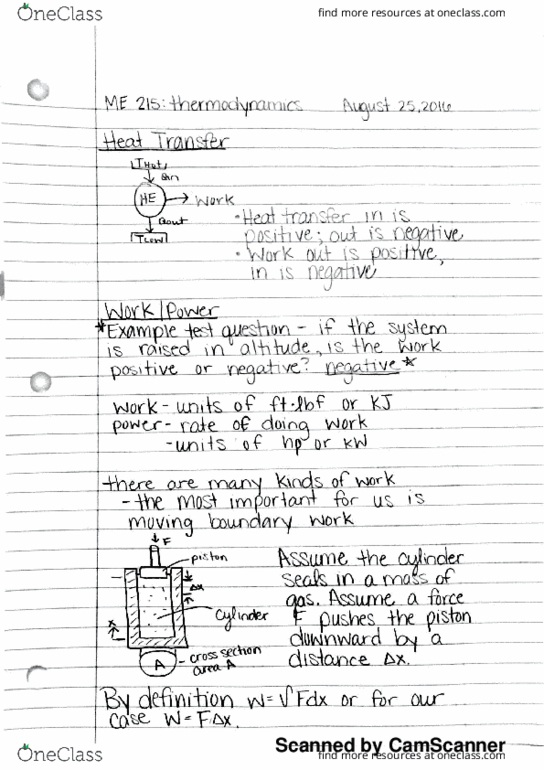 OneClass
find more resources at oneclass.com
ME 215: thermodynamics August 25, 2016
Heat Transfer
THot
Qin
HE
Work
Qout
TLow
• Heat transfer in is
positive; out is negative
• Work out is positive,
in is negative
Work/Power
*Example test question - if the system
is raised in altitude, is the work
positive or negative? negative*
work - units of ft·lbf or KJ
power - rate of doing work
- units of hp or kW
there are many kinds of work
- the most important for us is
moving boundary work
F
piston
Δx
cylinder
x
A
- cross section
area A
Assume the cylinder
seals in a mass of
gas. Assume a force
F pushes the piston
downward by a
distance Δx.
By definition W=√Fdx or for our
case W=FΔx.
Scanned by CamScanner
OneClass
find more resources at oneclass.com